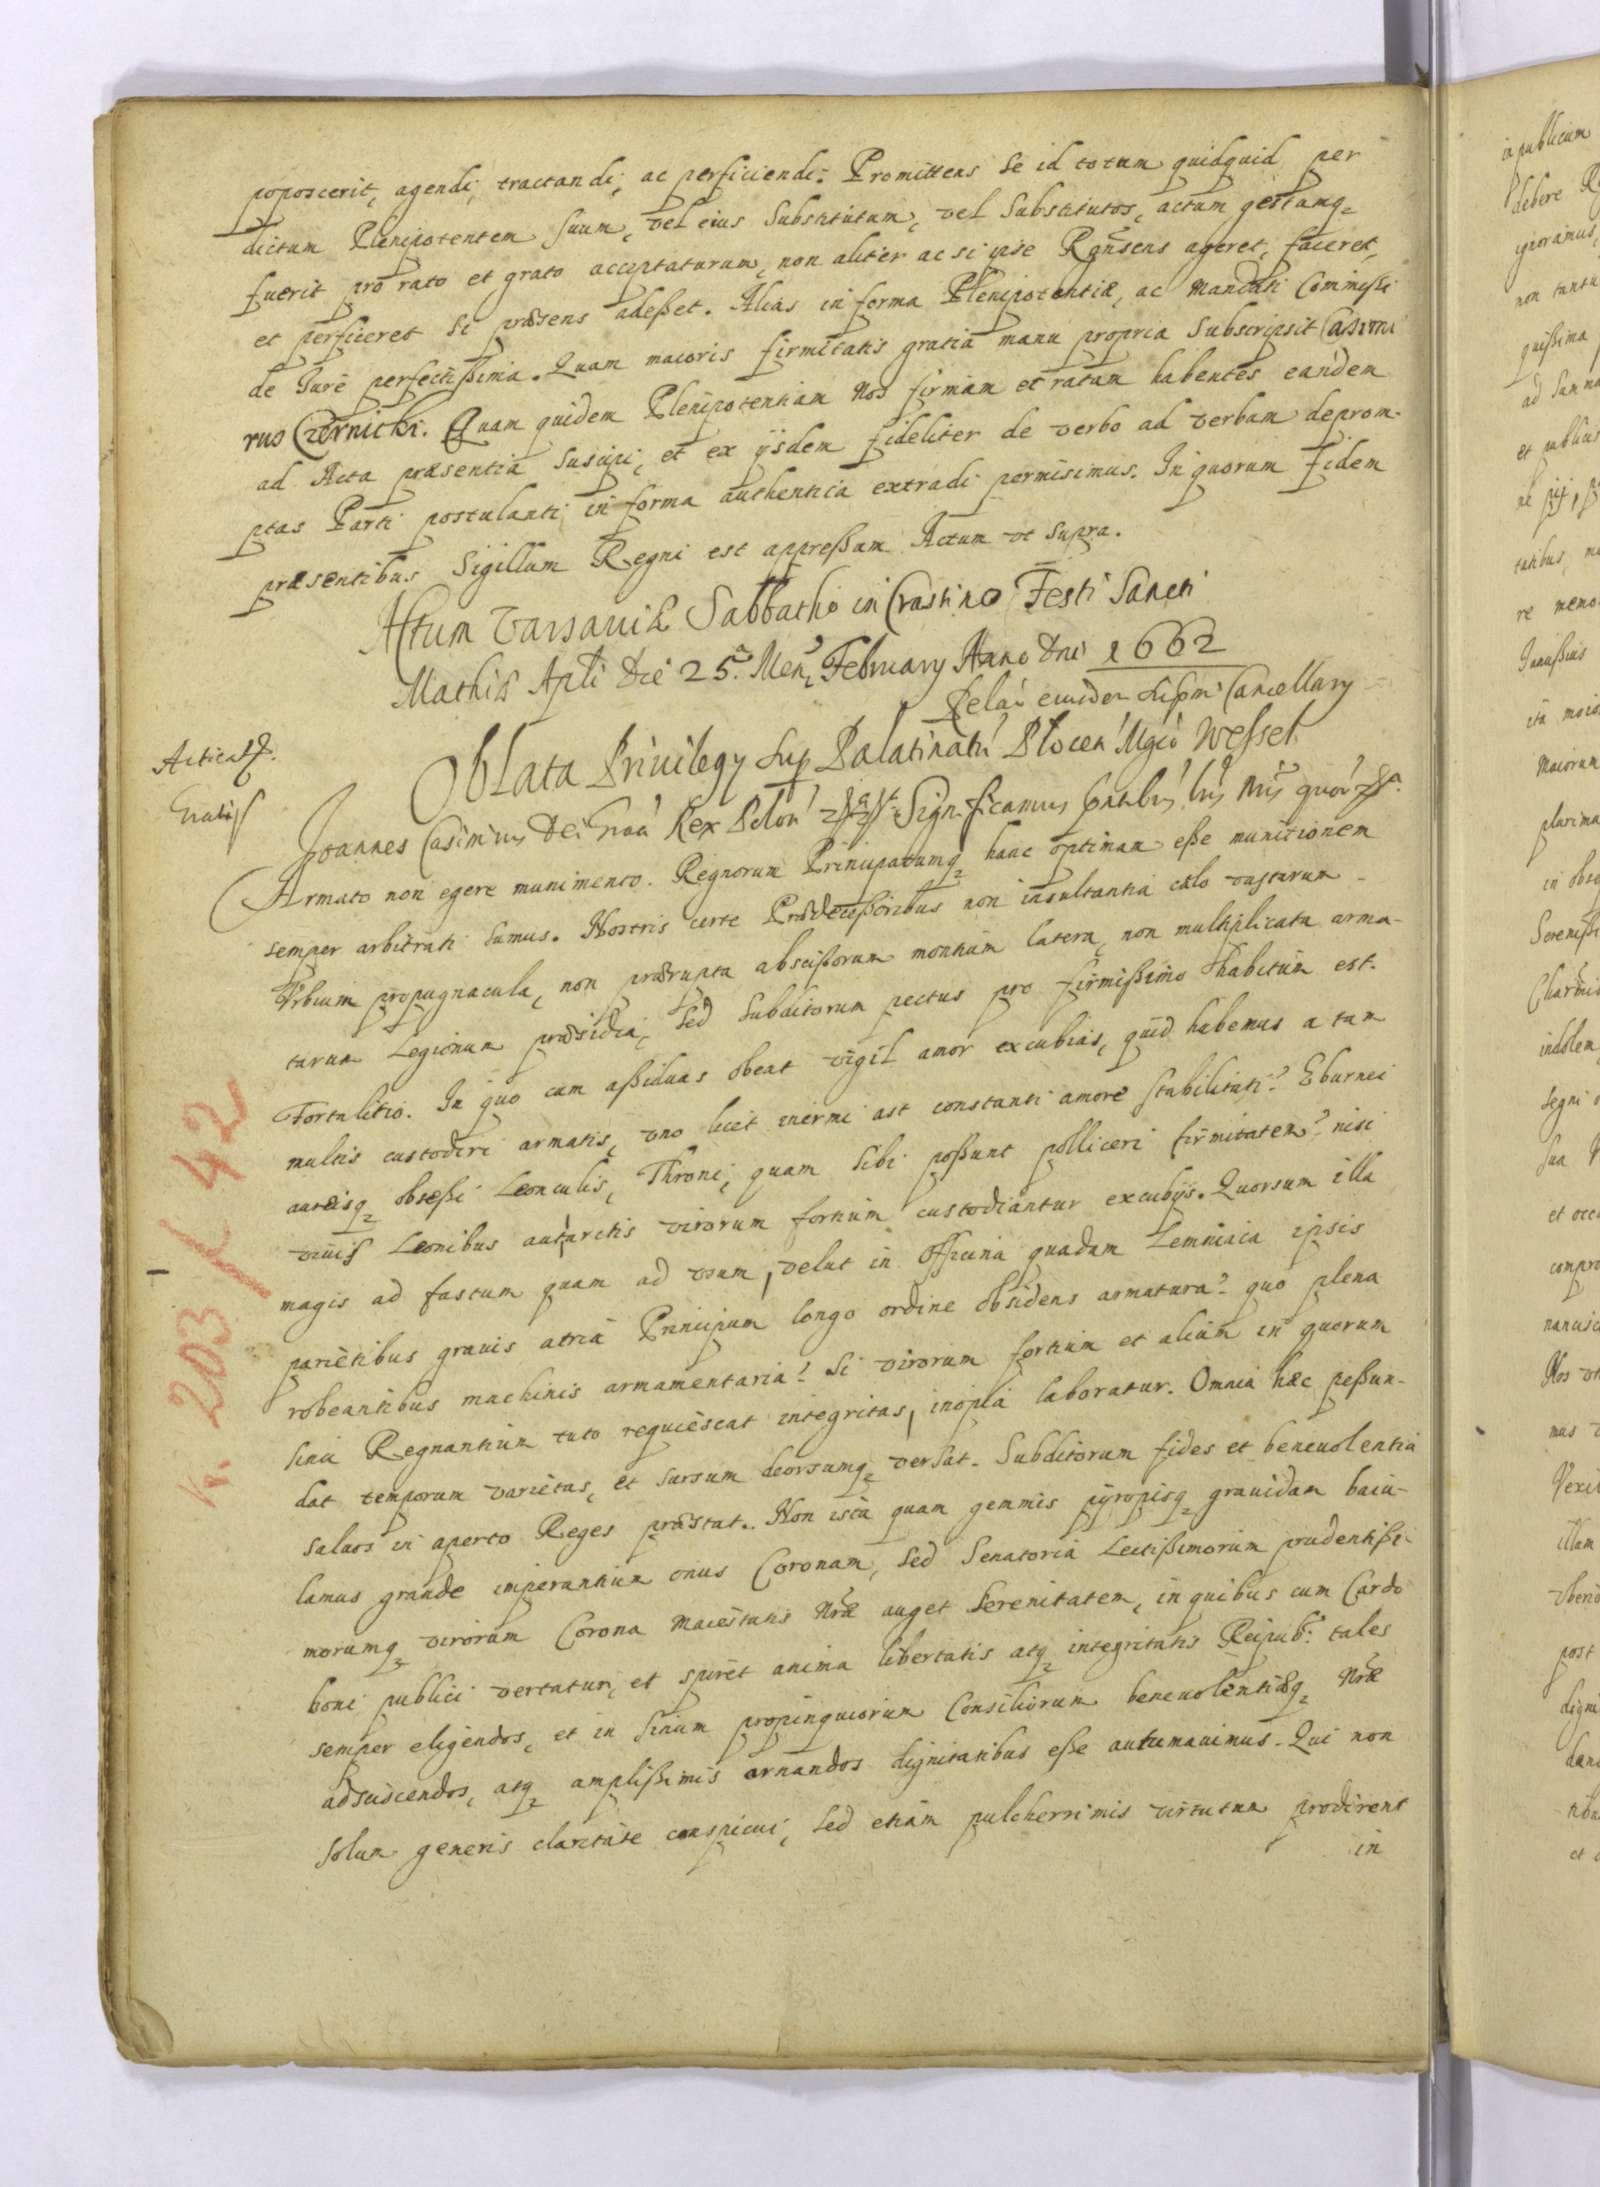 poposcerit, agendi, tractandi, ac perficiendi. Promittens se id totum quidquid per
dictum Plenipotentem suum, vel eius Substitutum, vel Substitutos, actum gestumq₂
fuerit pro rato et grato acceptaturum, non aliter ac si ipse Rgnsens ageret, faceret,
et perficeret si præsens adeßet. Alias in forma Plenipotentiæ, ac Mandati Commißi
de Iure perfectißima. Quam maioris firmitatis gratia manu propria subscripsit Casimi
rus Czernicki. Quam quidem Plenipotentiam Nos firmam et ratam habentes eandem
ad Acta præsentia suscipi, et ex ijsdem fideliter de verbo ad verbum deprom-
ptas Parti postulanti in forma authentica extradi permisimus. In quorum fidem
præsentibus Sigillum Regni est appreßum. Actum vt supra.
Actum Varsaviæ Sabbatho in Crastino Festi Sancti
Mathiæ Apli Die 25.ᵃ Men. February Anno Dni 1662
Relãi eiusdem supmi Cancellary
Oblata Privilegy sup Palatinatũ Plocen Mgco Weßel
Acticat.
Gratis
Joannes Casimirus Dei Graã Rex Polon Significamus pntibus lris Nris quor
Armato non egere munimento. Regnorum Principatumq₂ hanc optimam eße munitionem
semper arbitrati sumus. Nostris certe Prædeceßoribus non insultantia cælo vastarum
Vrbium propugnacula, non prærupta abscißorum montium latera, non multiplicata arma-
tarum Legionum præsidia, sed subditorum pectus pro firmißimo habitum est.
Fortalitio. In quo cum aßiduas obeat vigil amor excubias, quid habemus a tam
multis custodiri armatis, vno licet inermi ast constanti amore stabilitati? Eburnei
aureisq₂ obseßi Leonculis, Throni, quam sibi poßunt polliceri firmitatem? nisi
vivis Leonibus virorum fortium custodiantur excubijs. Quorsum illa
magis ad fastum quam ad vsum, velut in officina quadam Lemniaca ipsis
parietibus gravis atria Principum longo ordine obsidens armatura? quo plena
robeantibus machinis armamentaria? Si virorum fortium et alium in quorum
sinu Regnantium tuto requiescat integritas, inopia laboratur. Omnia hæc peßun-
dat temporum varietas, et sursum deorsumq₂ versat. Subditorum fides et benevolentia
salvos in aperto Reges præstat. Non ista quam gemmis pyropisq₂ gravidam baiu-
lamus grande imperantium onus Coronam, sed Senatoria Lectißimorum prudentißi-
morumq₂ virorum Corona Maiestatis Nræ auget Serenitatem, in quibus cum Cardo
boni publici vertatur, et spiret anima libertatis atq₂ integritatis Reipub: tales
semper eligendos, et in sinum propinquiorum Consiliorum benevolentiæq₂ Nræ
adsciscendos, atq₂ amplißimis ornandos dignitatibus eße autumavimus. Qui non
solum generis claritate conspicui, sed etiam pulcherrimis virtutum prodirent
in
K. 203 / 42